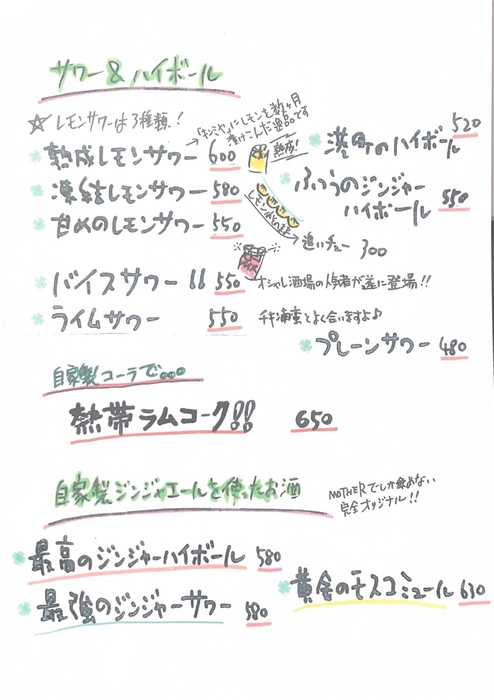 サワー & ハイボール
☆レモンサワーは3種類!
→「キンミヤ」にレモンを数ヶ月
漬けこんだ逸品です
熟成レモンサワー 600
熟成!
凍結レモンサワー 580
甘めのレモンサワー 550
→追いチュー 300
バイスサワー!! 550
オシャレ酒場の人気者が遂に登場!!
ライムサワー 550
のハイボール 520
ふつうのジンジャー
ハイボール 550
プレーンサワー 480
自家製コーラで...
熱帯ラムコーク!! 650
自家製ジンジャエールを使ったお酒
MOTHERでしか飲めない
完全オリジナル!!
最高のジンジャーハイボール 580
最強のジンジャーサワー 580
黄金のモスコミュール 630